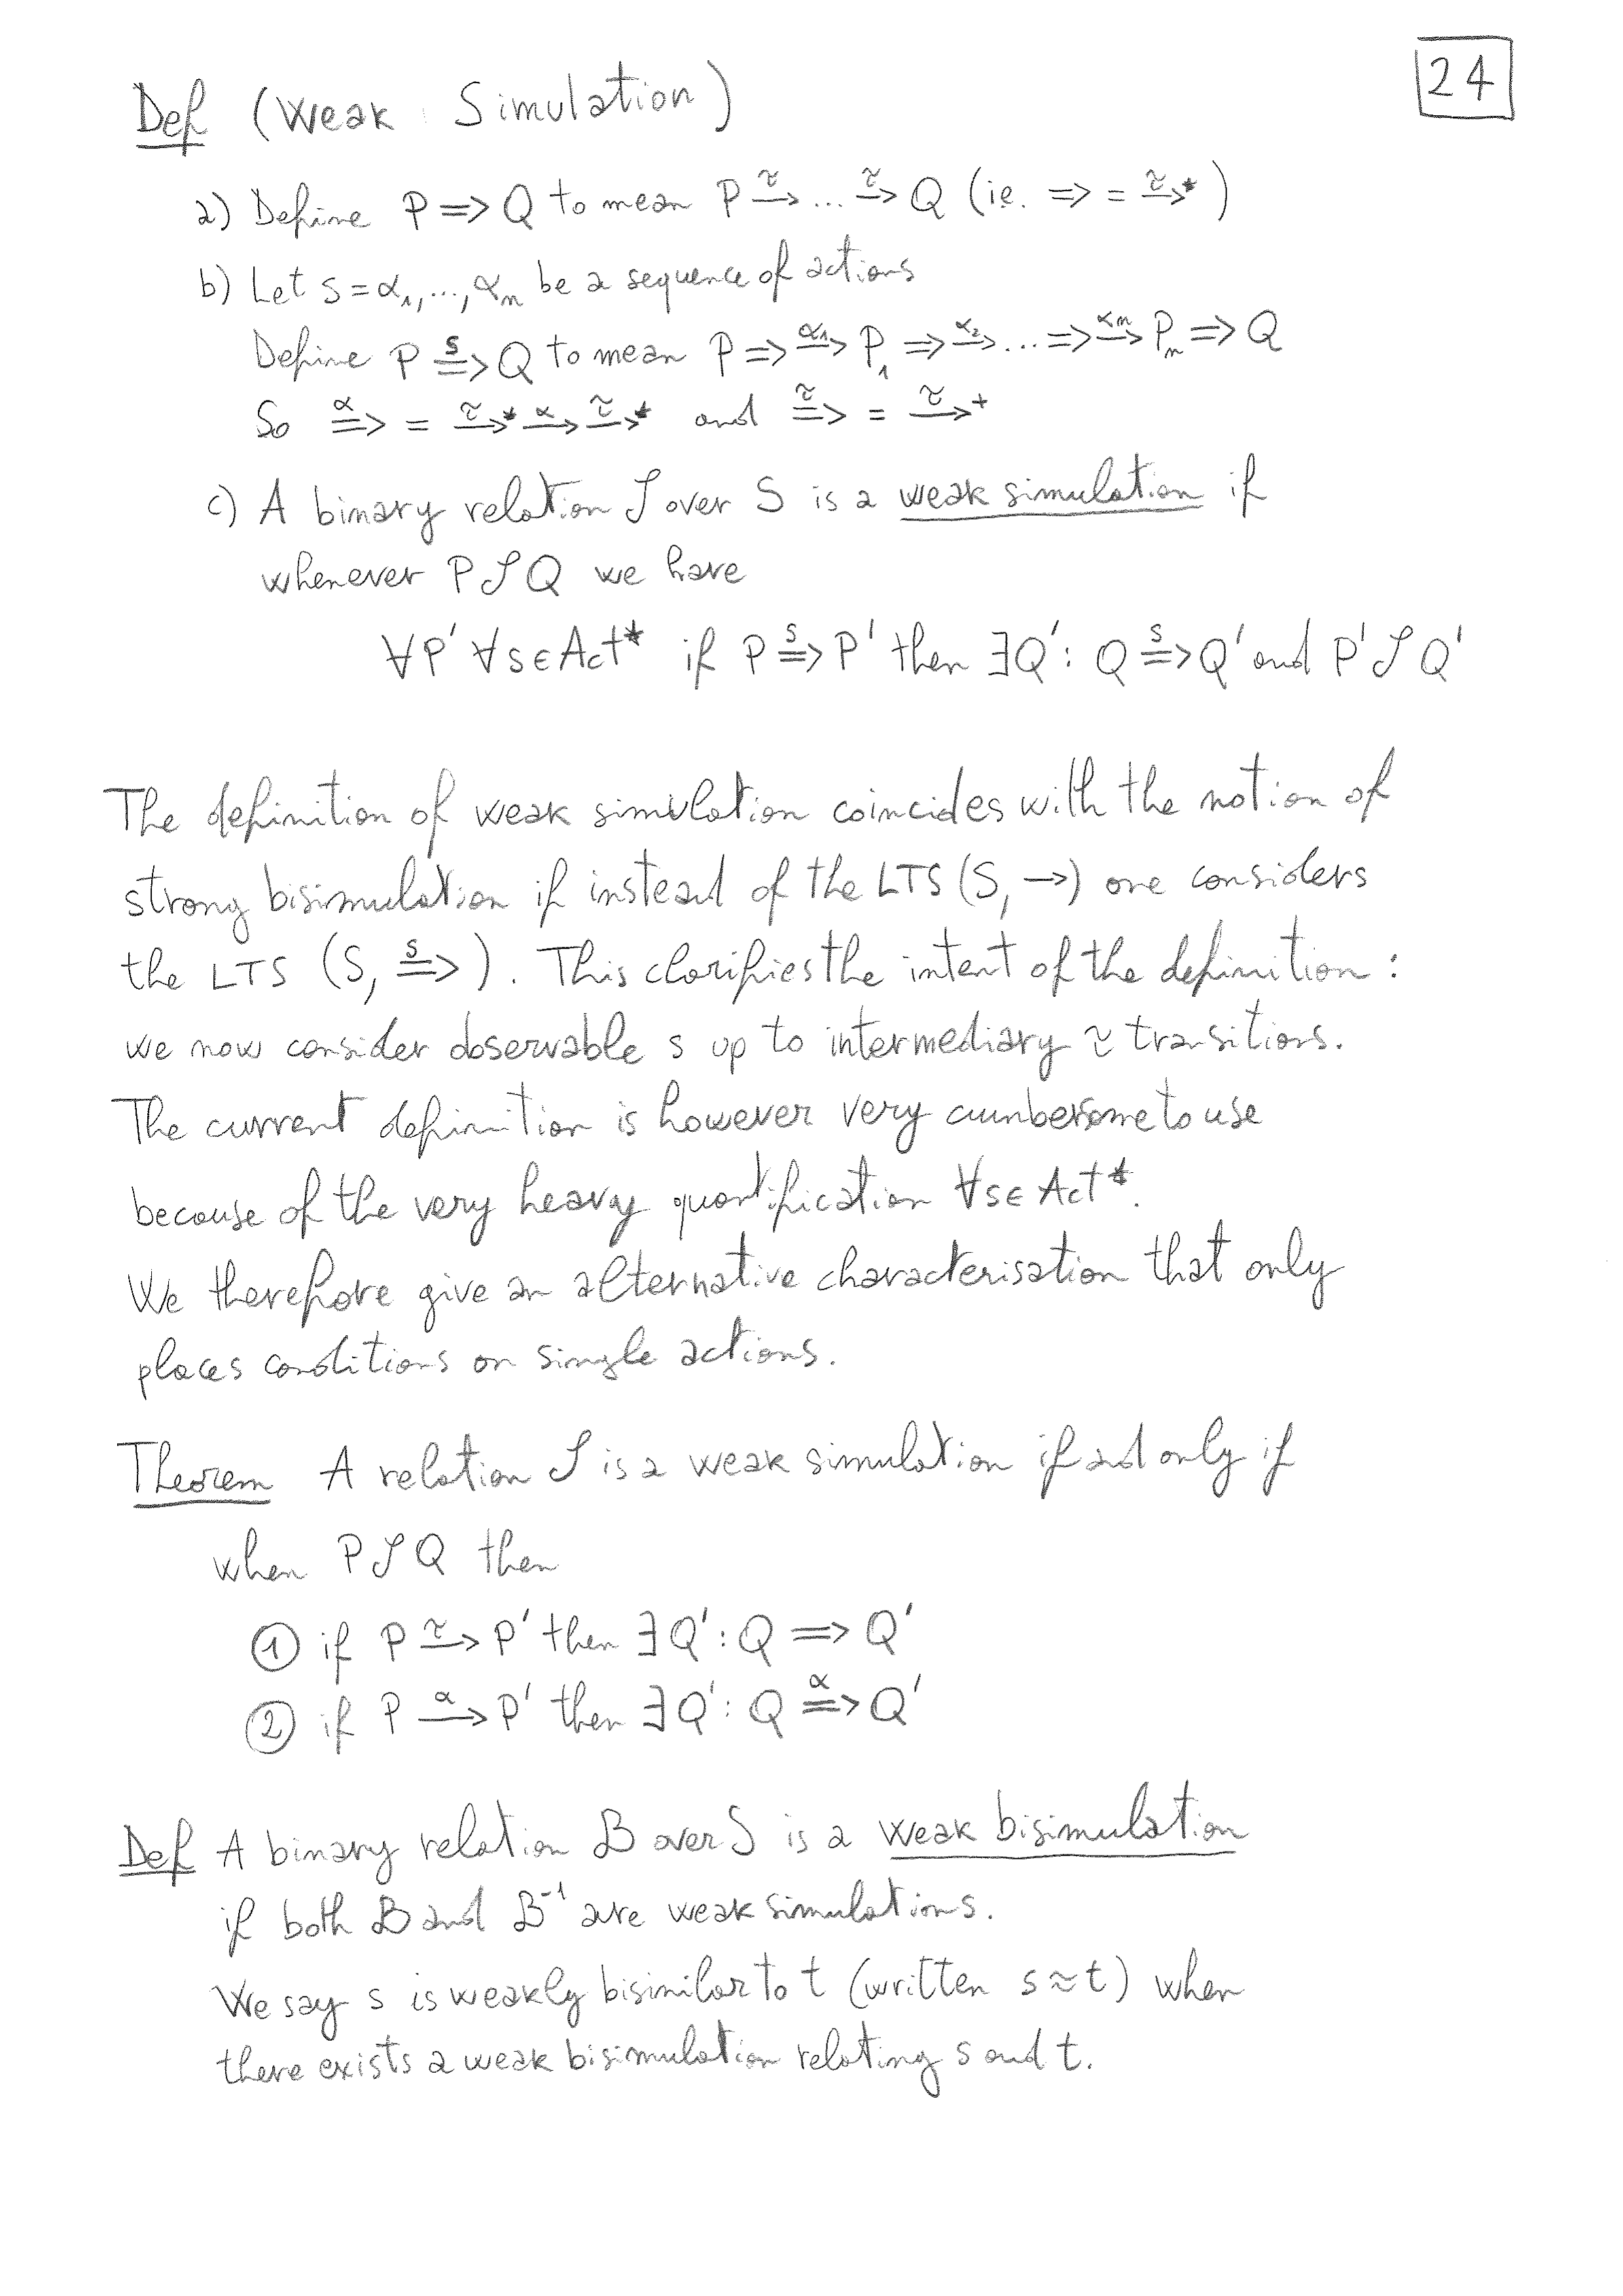 24
Def (Weak Simulation)
a) Define P => Q to mean P –τ–> ... –τ–> Q (ie. => = –τ–>*)
b) Let s = α₁, ..., αₙ be a sequence of actions
Define P =s=> Q to mean P => –α₁–> P₁ => –α₂–> ... => –αₙ–> Pₙ => Q
So =α=> = –τ–>* –α–> –τ–>* and =τ=> = –τ–>⁺
c) A binary relation 𝒮 over S is a weak simulation if
whenever P 𝒮 Q we have
∀P' ∀s∈Act* if P =s=> P' then ∃Q': Q =s=> Q' and P' 𝒮 Q'
The definition of weak simulation coincides with the notion of
strong bisimulation if instead of the LTS (S, →) one considers
the LTS (S, =s=>). This clarifies the intent of the definition:
we now consider observable s up to intermediary τ transitions.
The current definition is however very cumbersome to use
because of the very heavy quantification ∀s∈Act*.
We therefore give an alternative characterisation that only
places conditions on single actions.
Theorem A relation 𝒮 is a weak simulation if and only if
when P 𝒮 Q then
① if P –τ–> P' then ∃Q': Q => Q'
② if P –α–> P' then ∃Q': Q =α=> Q'
Def A binary relation ℬ over S is a weak bisimulation
if both ℬ and ℬ⁻¹ are weak simulations.
We say s is weakly bisimilar to t (written s ≈ t) when
there exists a weak bisimulation relating s and t.